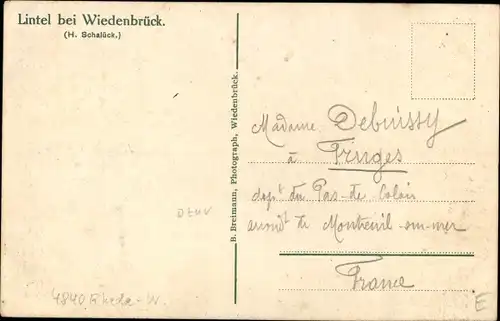 Lintel bei Wiedenbrück.
(H. Schalück.)
B. Breimann, Photograph, Wiedenbrück.
Madame Debuissy
à
Fruges
dep^t du Pas-de Calais
arrond^t de Montreuil-sur-mer
France
4840 Rheda-W.
E